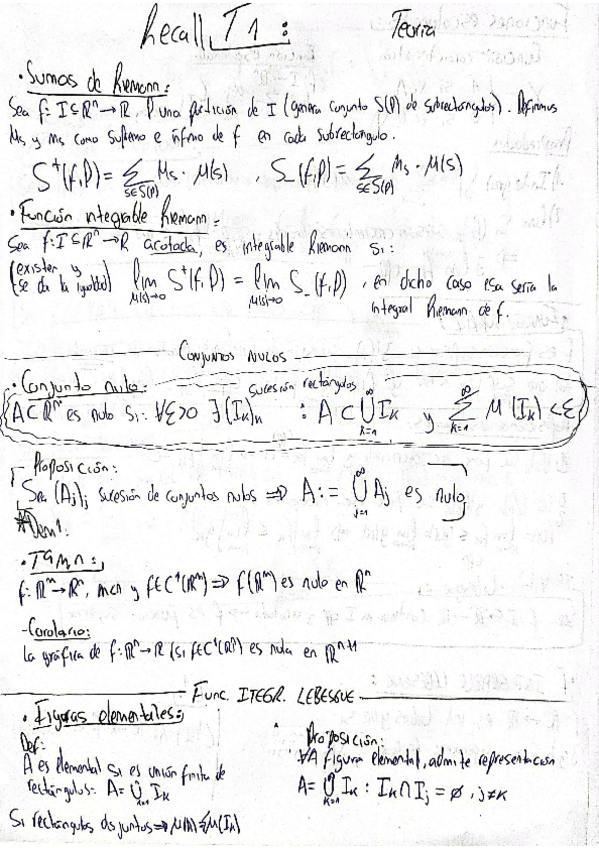 Recall T1: Teoría
· Sumas de Riemann:
Sea f: I⊆ℝⁿ→ℝ, P una partición de I (genera conjunto S(P) de subrectángulos). Definimos
Ms y ms como supremo e ínfimo de f en cada subrectángulo.
S⁺(f,P) = ∑_{S∈S(P)} Ms · μ(s) , S₋(f,P) = ∑_{S∈S(P)} ms · μ(s)
· Función integrable Riemann:
Sea f: I⊆ℝⁿ→ℝ acotada, es integrable Riemann si:
(existen y se da la igualdad) lim_{μ(s)→0} S⁺(f,P) = lim_{μ(s)→0} S₋(f,P) , en dicho caso esa sería la
integral Riemann de f.
CONJUNTOS NULOS
· Conjunto nulo: sucesión rectángulos
A⊂ℝⁿ es nulo si: ∀ε>0 ∃(Iₖ)ₖ : A ⊂ ⋃_{k=1}^∞ Iₖ y ∑_{k=1}^∞ μ(Iₖ) < ε
Proposición:
Sea (Aⱼ)ⱼ sucesión de conjuntos nulos ⟹ A := ⋃_{j=1}^∞ Aⱼ es nulo
Dem:
f: ℝᵐ→ℝⁿ, m<n y f∈C¹(ℝᵐ) ⟹ f(ℝᵐ) es nulo en ℝⁿ
- Corolario:
la gráfica de f: ℝⁿ→ℝ (si f∈C¹(ℝⁿ)) es nula en ℝⁿ⁺¹
FUNC. ITEGR. LEBESGUE
· Figuras elementales:
Def:
A es elemental si es unión finita de
rectángulos: A = ⋃_{k=1}^n Iₖ
Si rectángulos disjuntos ⟹ μ(A) = ∑μ(Iₖ)
Proposición:
∀A figura elemental, admite representación
A = ⋃_{k=1}^n Iₖ : Iₖ ∩ Iⱼ = ∅, j≠k